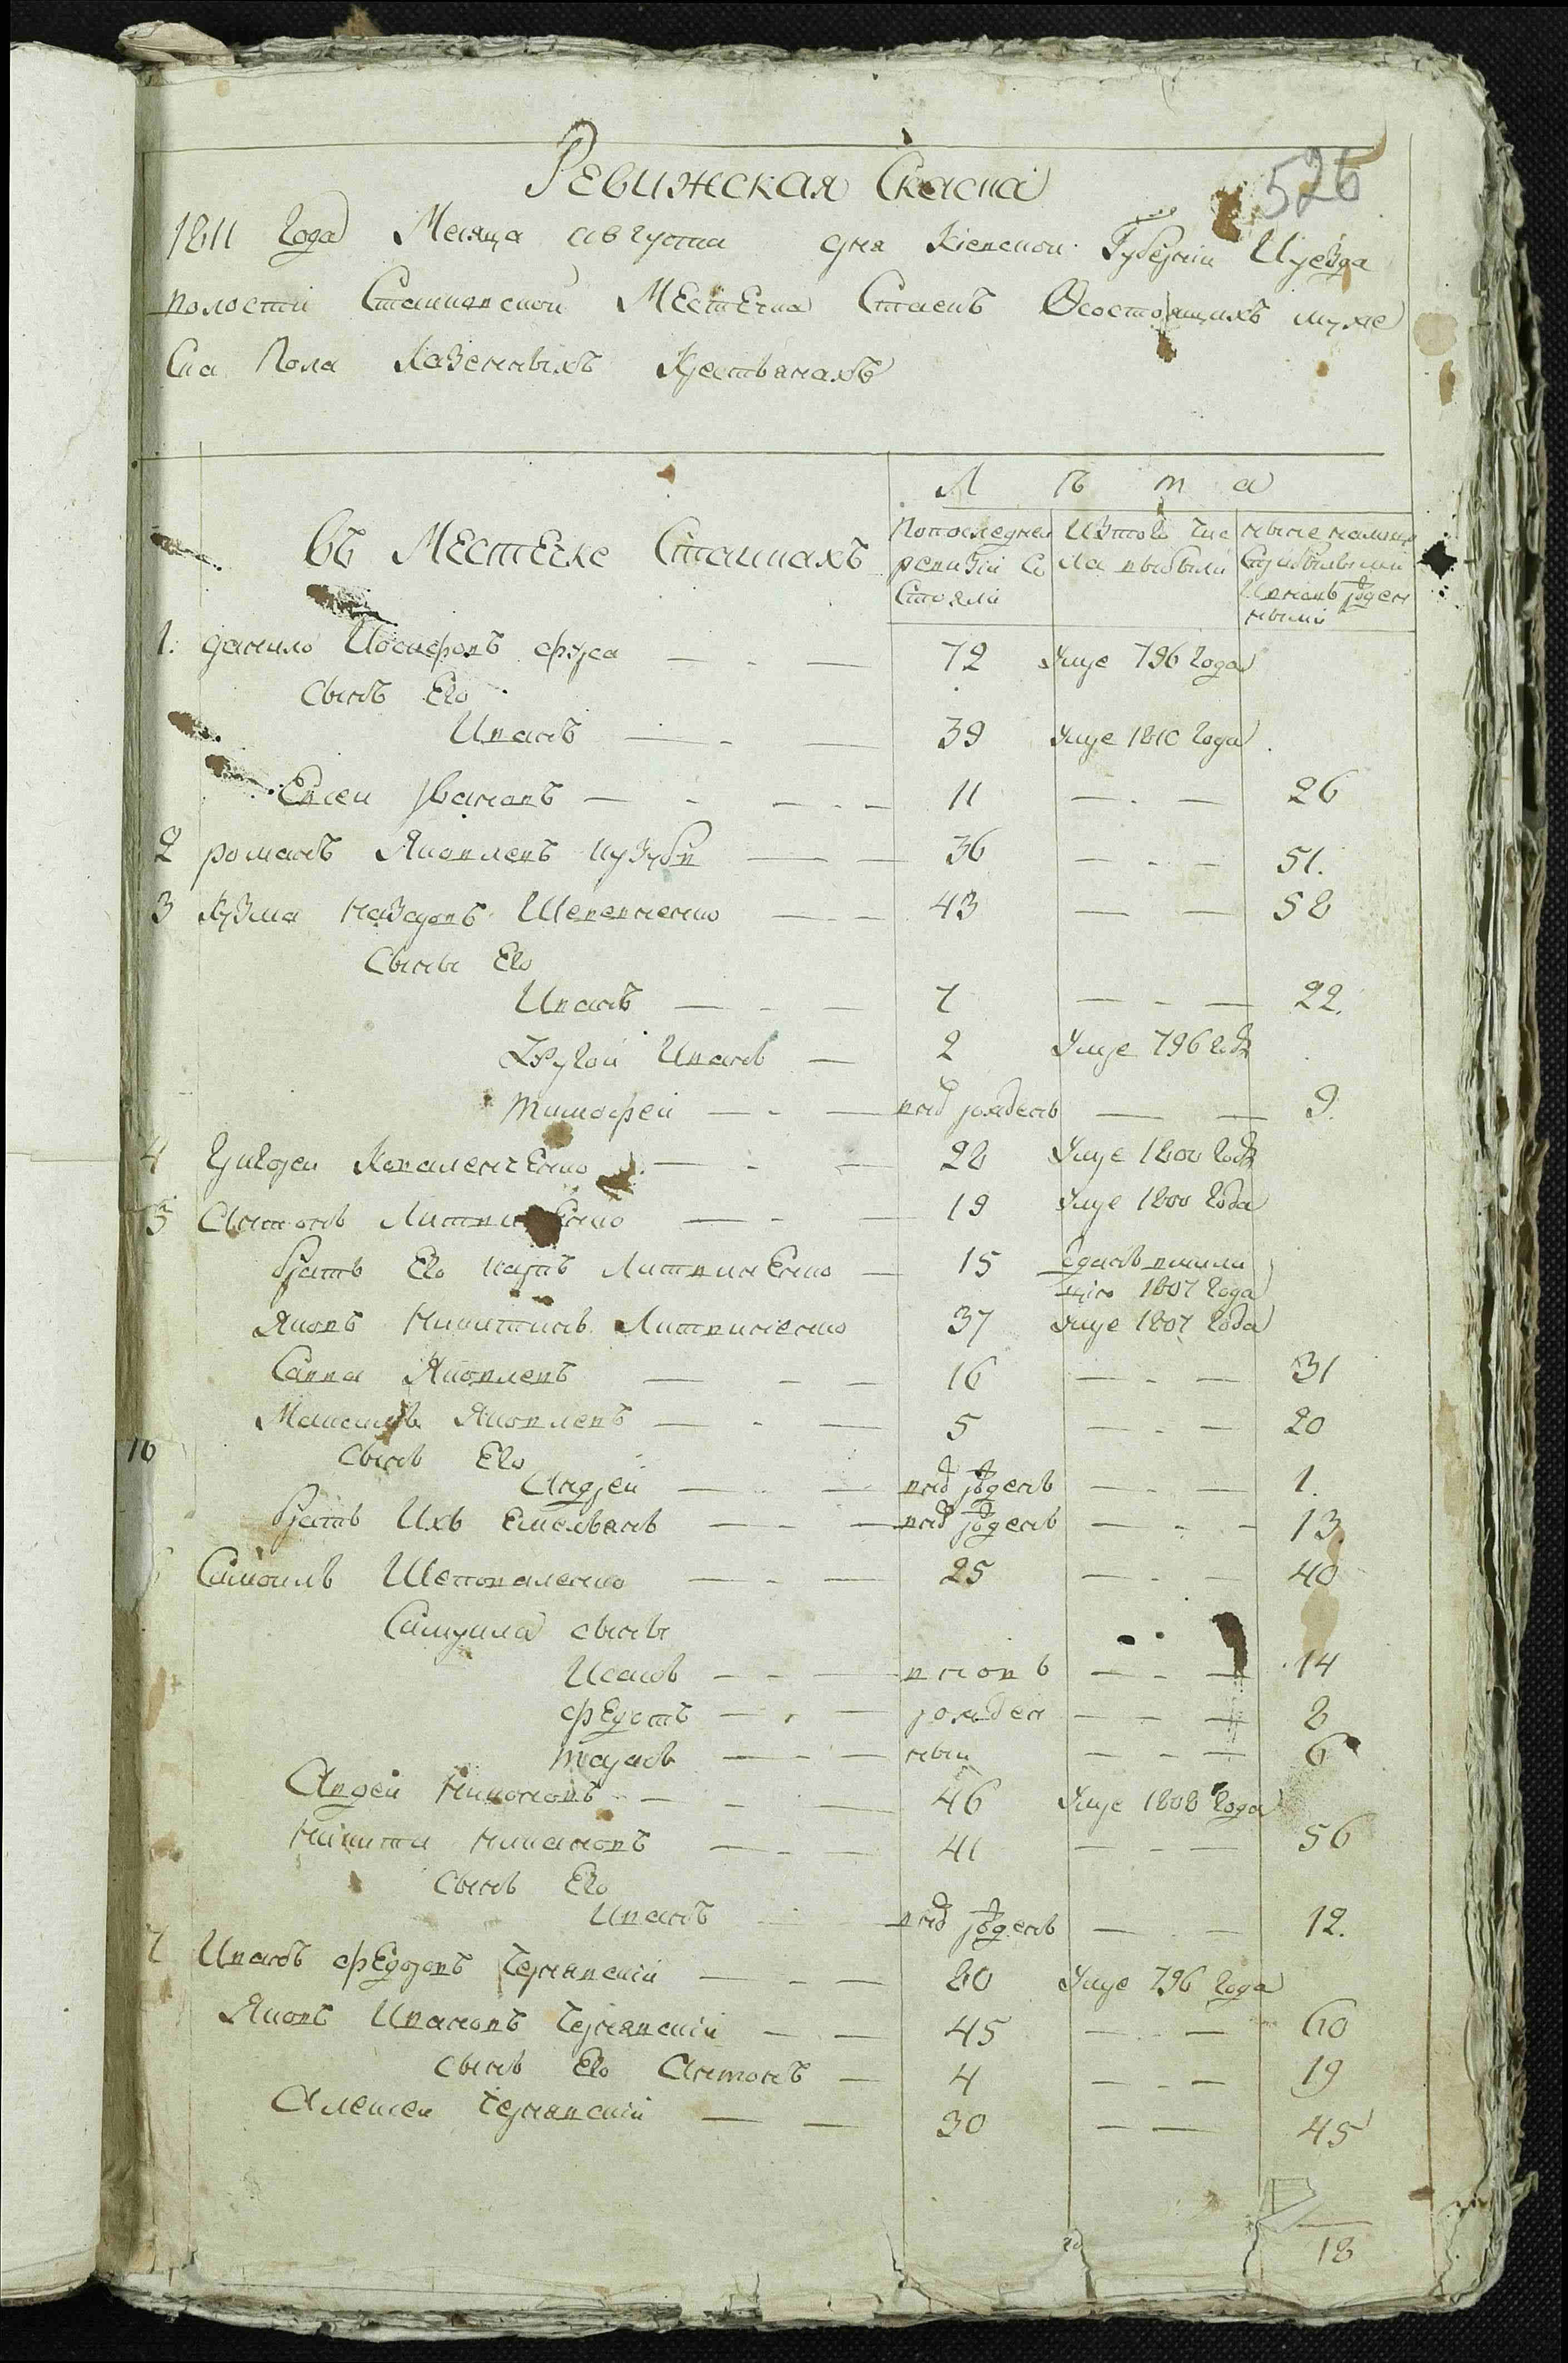 526
Ревижская Скаска
1811 Года Месяца августа дня Кіевской Губерніи Иуезда
волости Стайковской МЕстЕчка Стаекъ Осостоящихъ муже
Ска Пола Казенныхъ Крестьянахъ
Лѣта
въ МЕстЕчке Стайкахъ
Попоследней ревизіи Состояли
Изтого числа выбыли
ныне налицо Сприбылыми Ивновь рожденными
1. данило Иосифовъ фура 72 Умре 796 Года
Сынъ Его
Иванъ 39 Умре 1810 Года
Евсеи Ивановъ 11 26
2 романъ Яковлевъ кузубъ 36 51.
3 Кузма Назаровъ Шевченко 43 58
Сыны Его
Иванъ 7 22.
Другой Иванъ 2 Умре 796 года
тимофей внов рожденъ 9.
4 Григореи Коваленчєнко 28 Умре 1800 года
5 Антонъ Литвин Енко 19 Умре 1800 Года
Братъ Его карпъ ЛитвинЕнко 15 Отданъ вмили
цію 1807 Года
Яковъ Никитинъ Литвиненко 37 Умре 1807 Года
Савва Яковлевъ 16 31
Максимъ Яковлевъ 5 20
10
Сынъ Его
Андрей внов рожденъ 1.
Братъ Ихъ Емельянъ внов рожденъ 13.
6 Самоилъ Шаповаленко 25 40
Самуила сыны
Исакъ вновь 14
фЕдотъ рожден 8
тарасъ ныи 6
Андреи Никоновъ 46 Умре 1808 Года
Никита Никановъ 41 56
Сынъ Его
Иванъ внов рожденъ 12.
7 Иванъ фЕдоровъ Чернявскій 60 Умре 796 Года
Яковъ Ивановъ Чернявскій 45 60
сынъ Его Антонъ 4 19
Алексеи Чернявскій 30 45
18